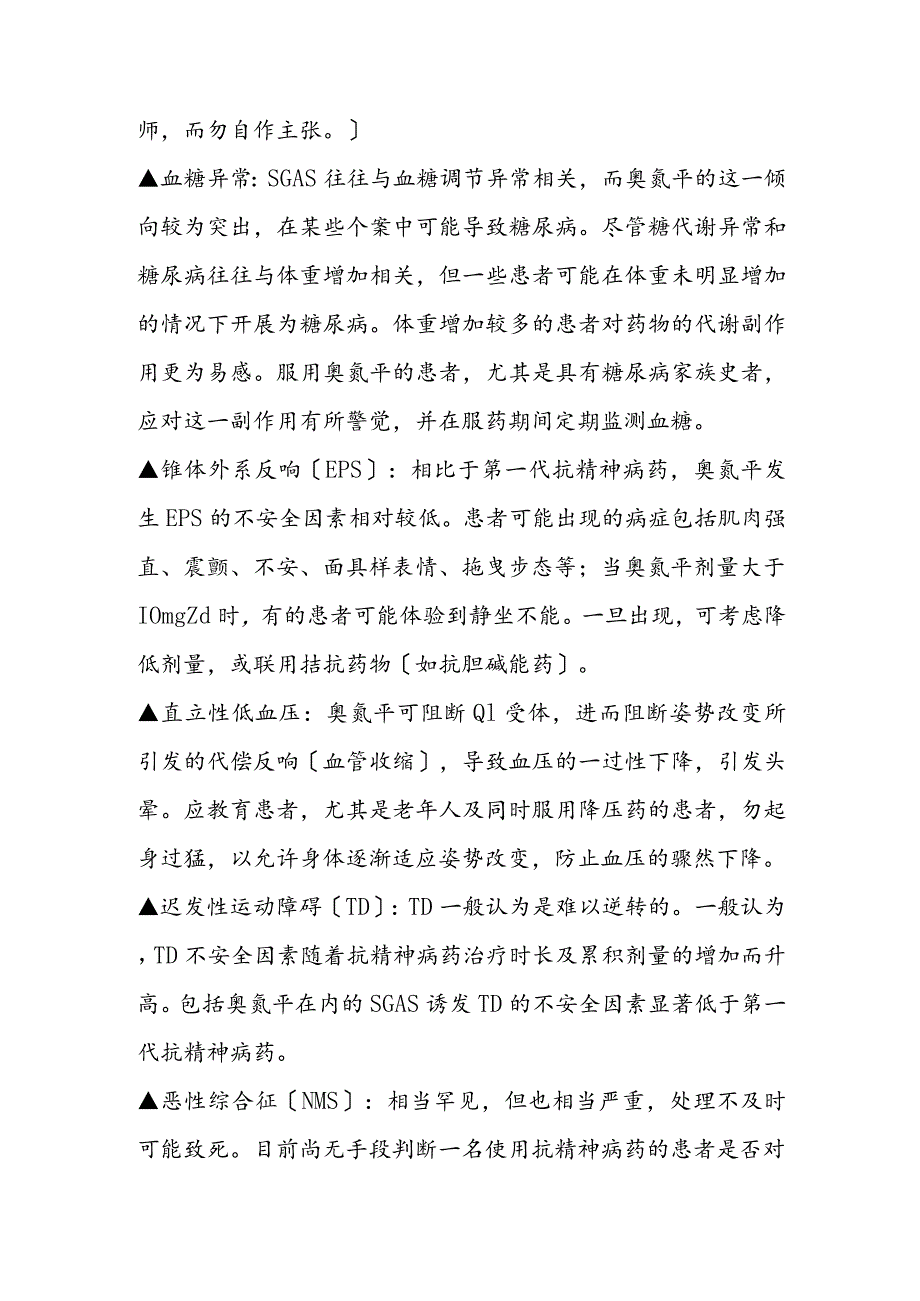 师，而勿自作主张。〕
▲血糖异常：SGAS 往往与血糖调节异常相关，而奥氮平的这一倾
向较为突出，在某些个案中可能导致糖尿病。尽管糖代谢异常和
糖尿病往往与体重增加相关，但一些患者可能在体重未明显增加
的情况下开展为糖尿病。体重增加较多的患者对药物的代谢副作
用更为易感。服用奥氮平的患者，尤其是具有糖尿病家族史者，
应对这一副作用有所警觉，并在服药期间定期监测血糖。
▲锥体外系反响〔EPS〕：相比于第一代抗精神病药，奥氮平发
生 EPS 的不安全因素相对较低。患者可能出现的病症包括肌肉强
直、震颤、不安、面具样表情、拖曳步态等；当奥氮平剂量大于
IOmgZd 时，有的患者可能体验到静坐不能。一旦出现，可考虑降
低剂量，或联用拮抗药物〔如抗胆碱能药〕。
▲直立性低血压：奥氮平可阻断 Ql 受体，进而阻断姿势改变所
引发的代偿反响〔血管收缩〕，导致血压的一过性下降，引发头
晕。应教育患者，尤其是老年人及同时服用降压药的患者，勿起
身过猛，以允许身体逐渐适应姿势改变，防止血压的骤然下降。
▲迟发性运动障碍〔TD〕：TD 一般认为是难以逆转的。一般认为
，TD 不安全因素随着抗精神病药治疗时长及累积剂量的增加而升
高。包括奥氮平在内的 SGAS 诱发 TD 的不安全因素显著低于第一
代抗精神病药。
▲恶性综合征〔NMS〕：相当罕见，但也相当严重，处理不及时
可能致死。目前尚无手段判断一名使用抗精神病药的患者是否对